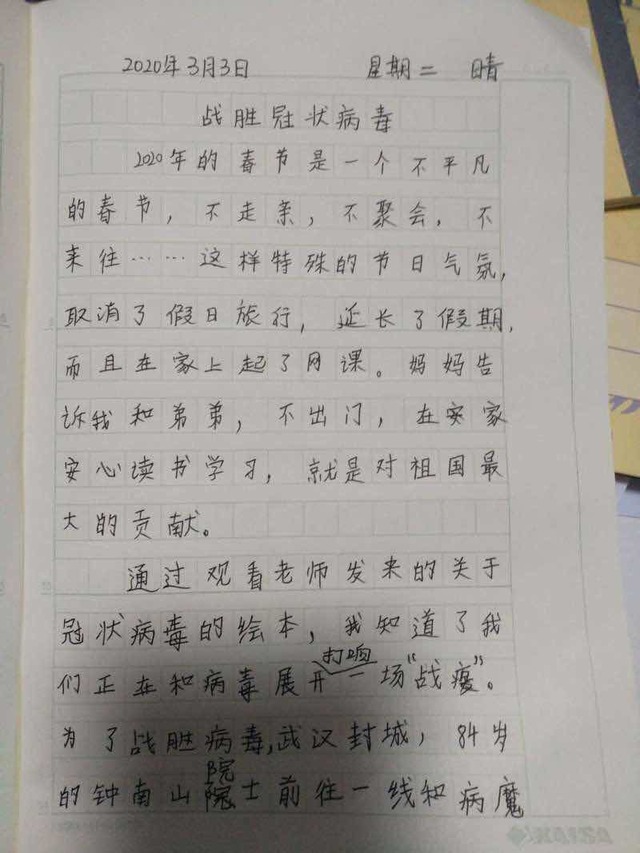 2020年3月3日 星期二 晴
战胜冠状病毒
2020年的春节是一个不平凡
的春节，不走亲，不聚会，不
来往……这样特殊的节日气氛，
取消了假日旅行，延长了假期，
而且在家上起了网课。妈妈告
诉我和弟弟，不出门，在家
安心读书学习，就是对祖国最
大的贡献。
通过观看老师发来的关于
冠状病毒的绘本，我知道了我
打响
们正在和病毒展开一场“战疫”。
为了战胜病毒，武汉封城，84岁
院
的钟南山院士前往一线和病魔
KAISA